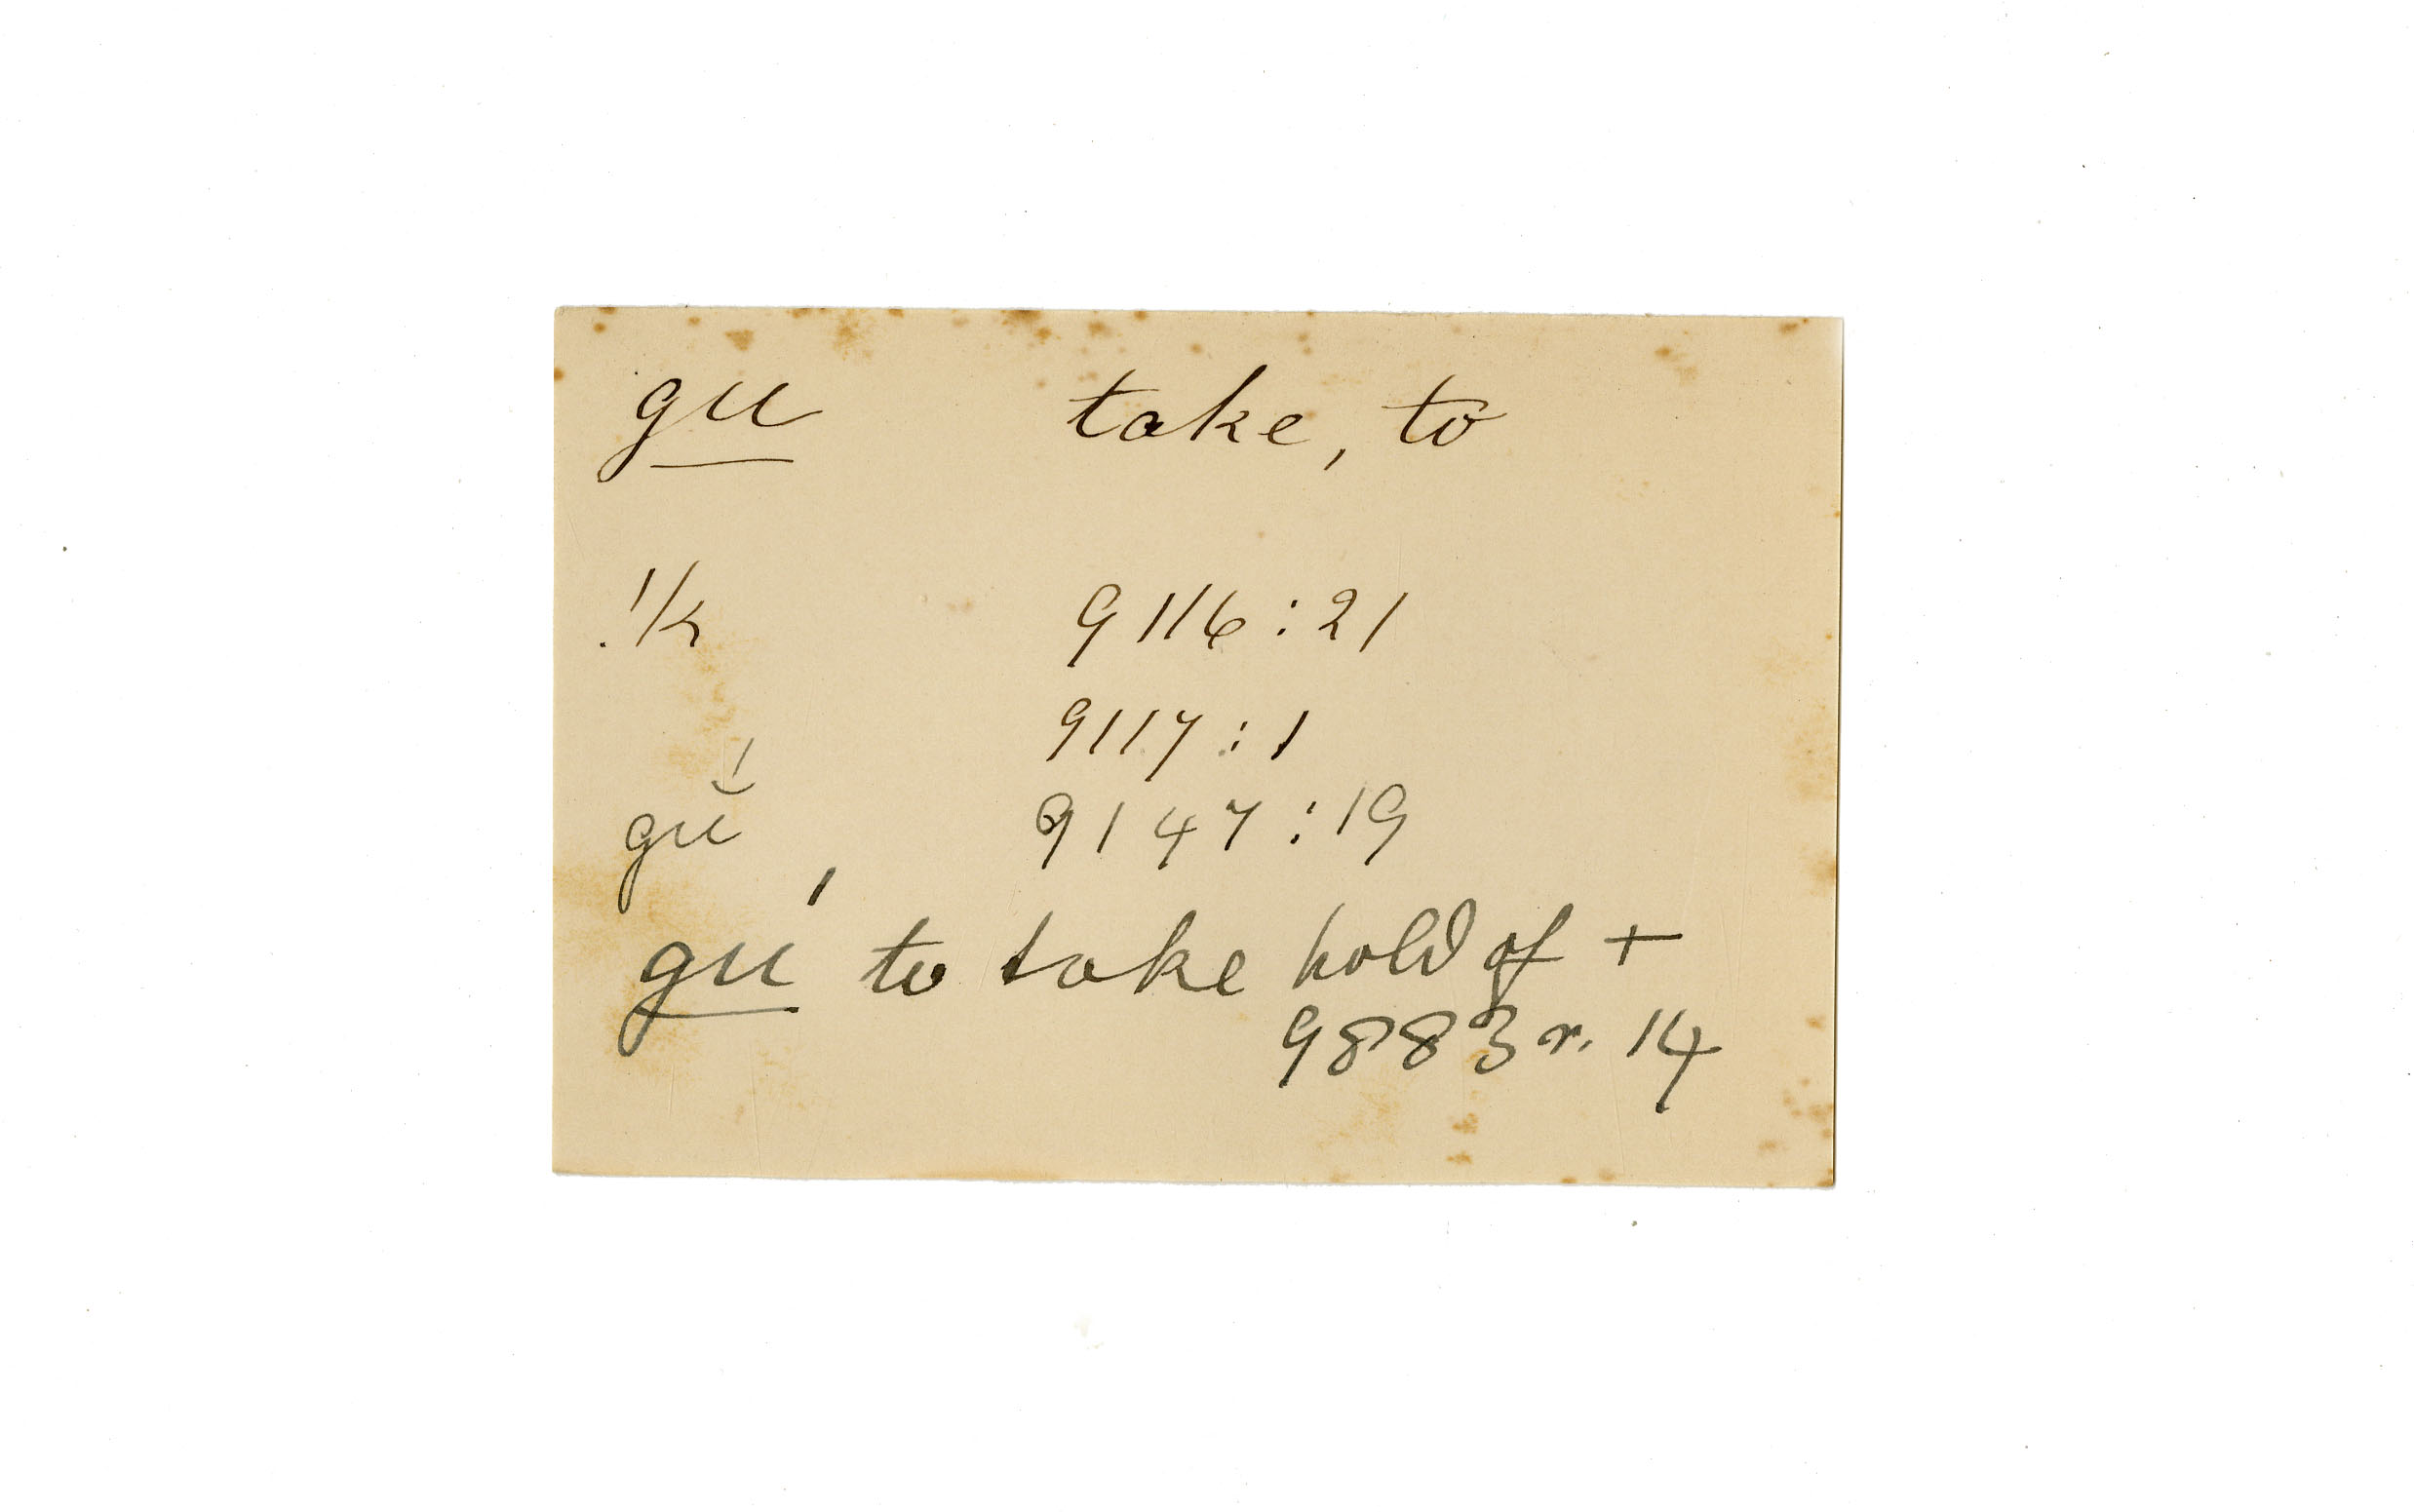 gu take, to
!/k 9116:21
9117:1
gŭ́ 9147:19
gú to take hold of +
9883 r. 14